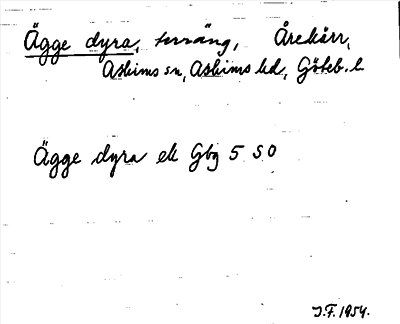 Ägge dyra, terräng, Årekärr,
Askims sn, Askims hd, Göteb. l.
Ägge dyra ek Gbg 5 SO
J.F. 1954.